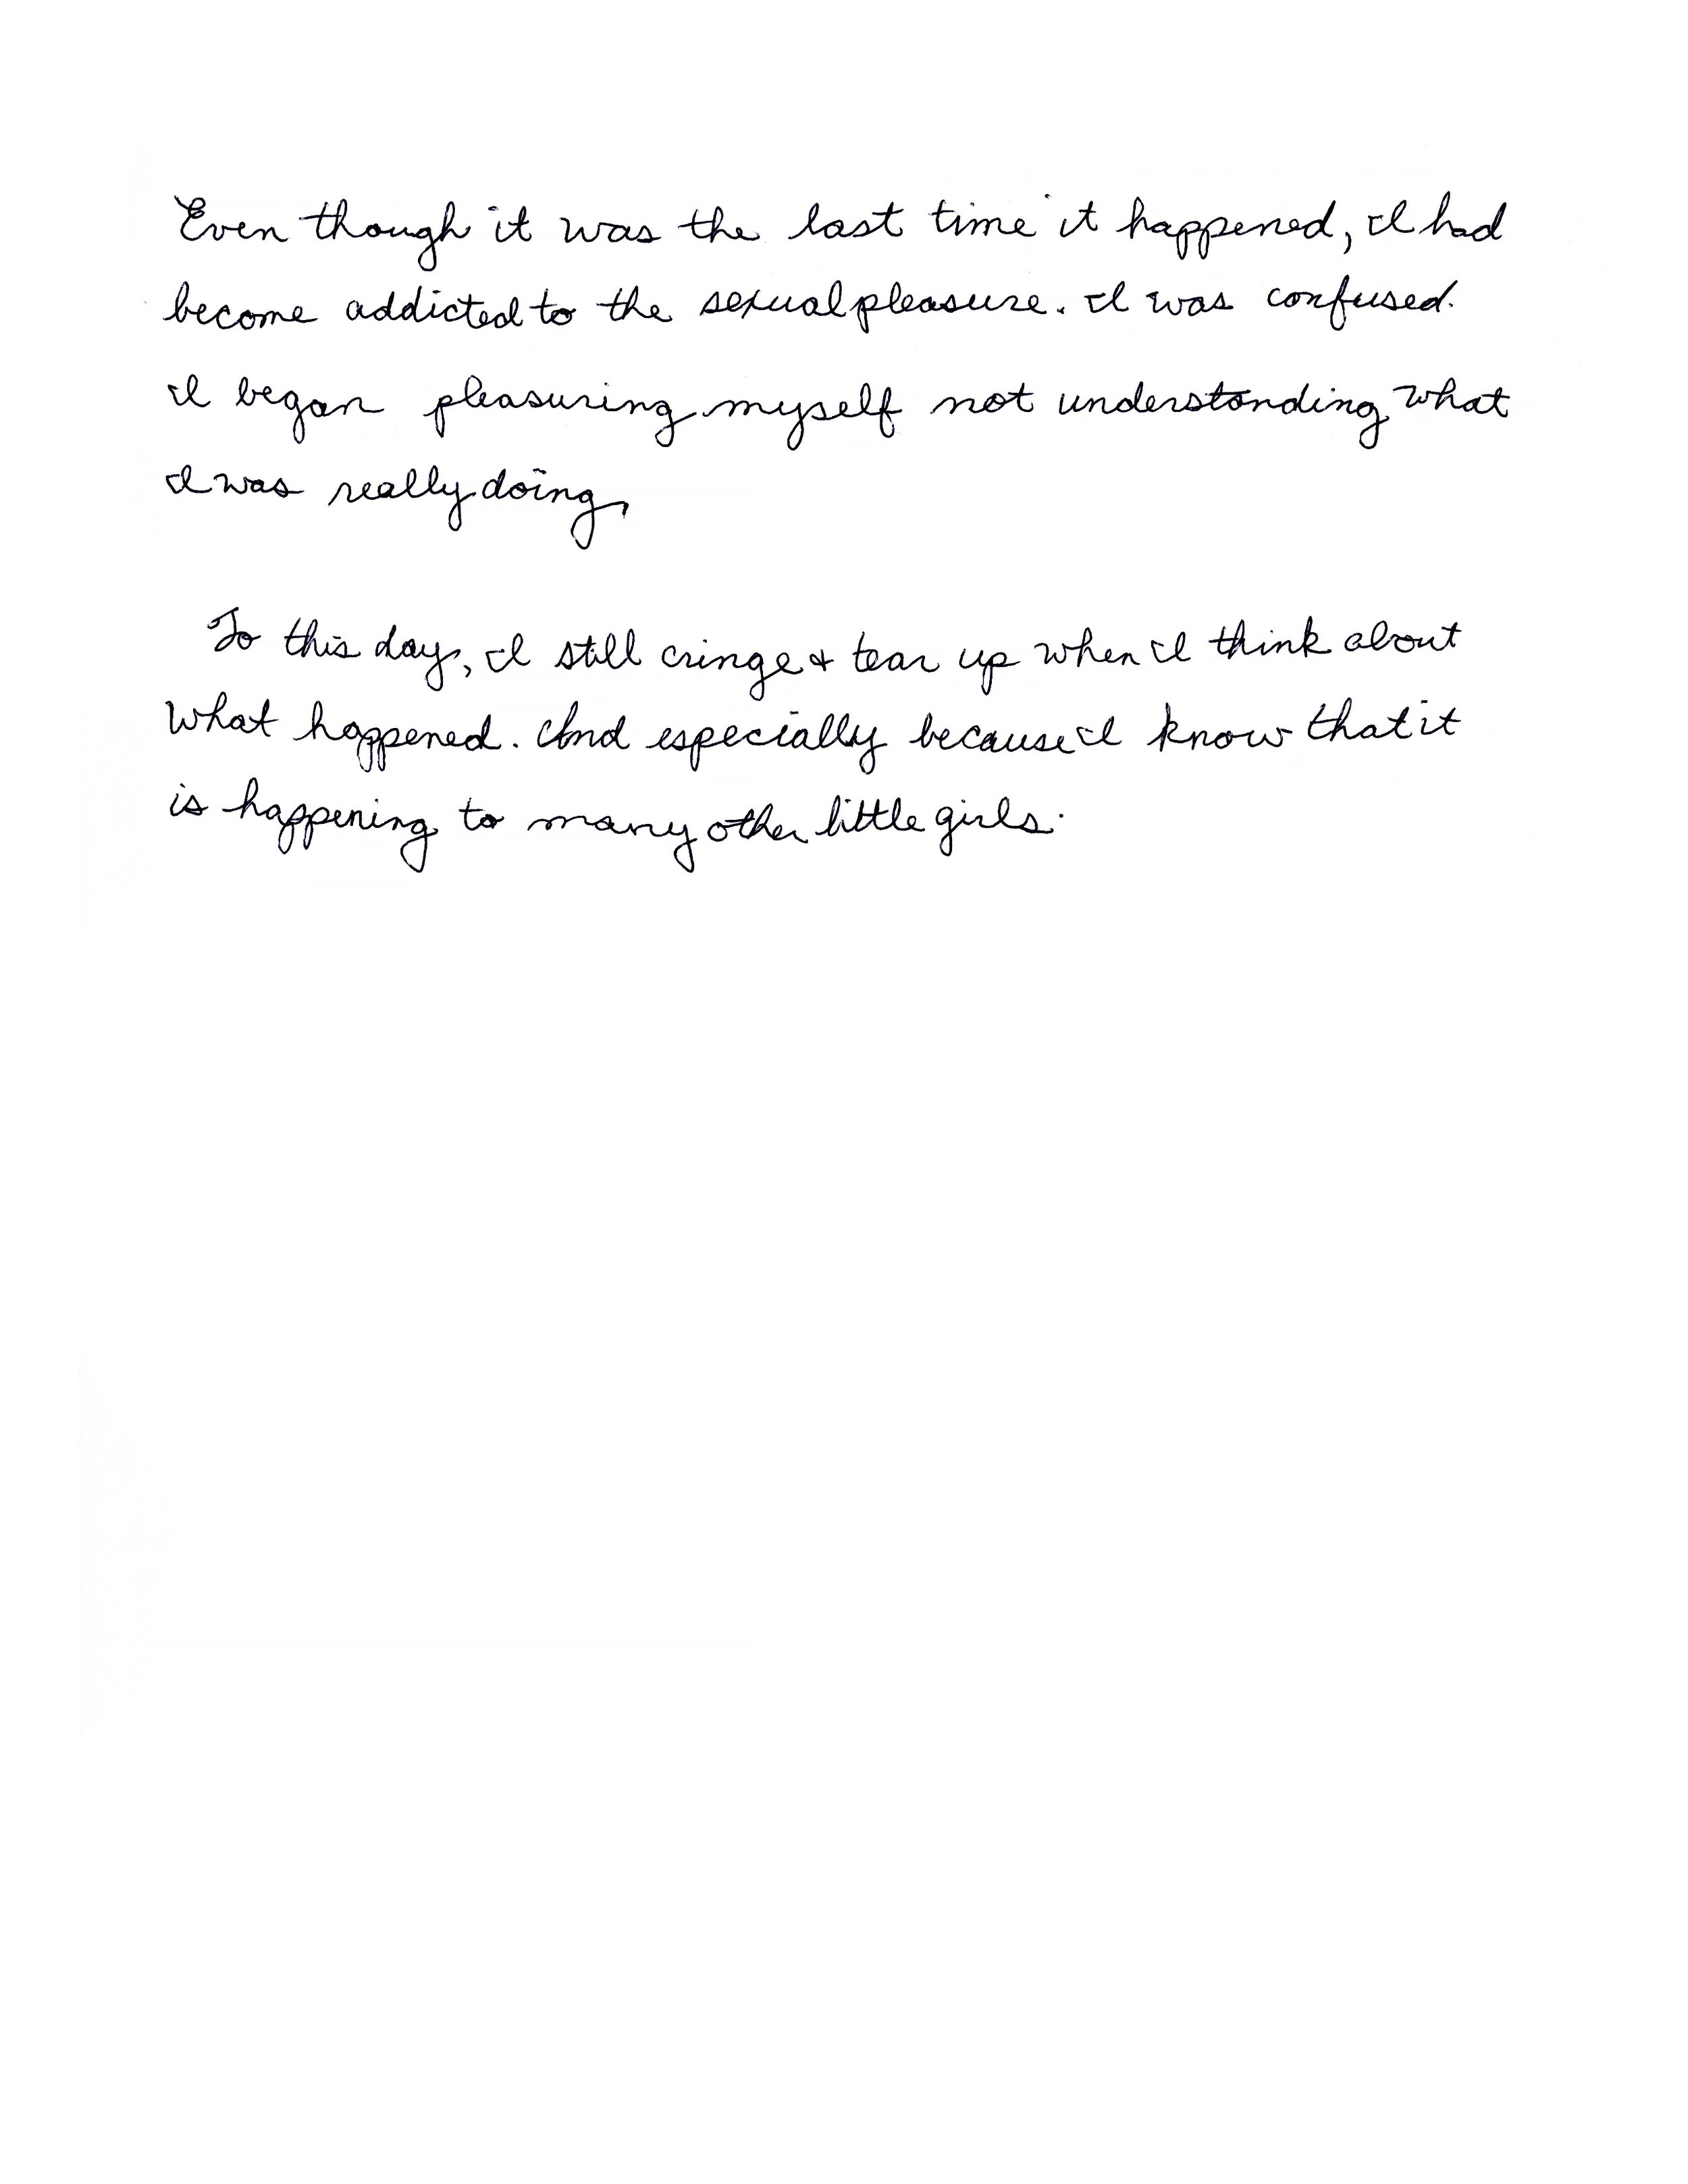 Even though it was the last time it happened, I had
become addicted to the sexual pleasure. I was confused.
I began pleasuring myself not understanding what
I was really doing,
To this day, I still cringe & tear up when I think about
what happened. And especially because I know that it
is happening to many other little girls.